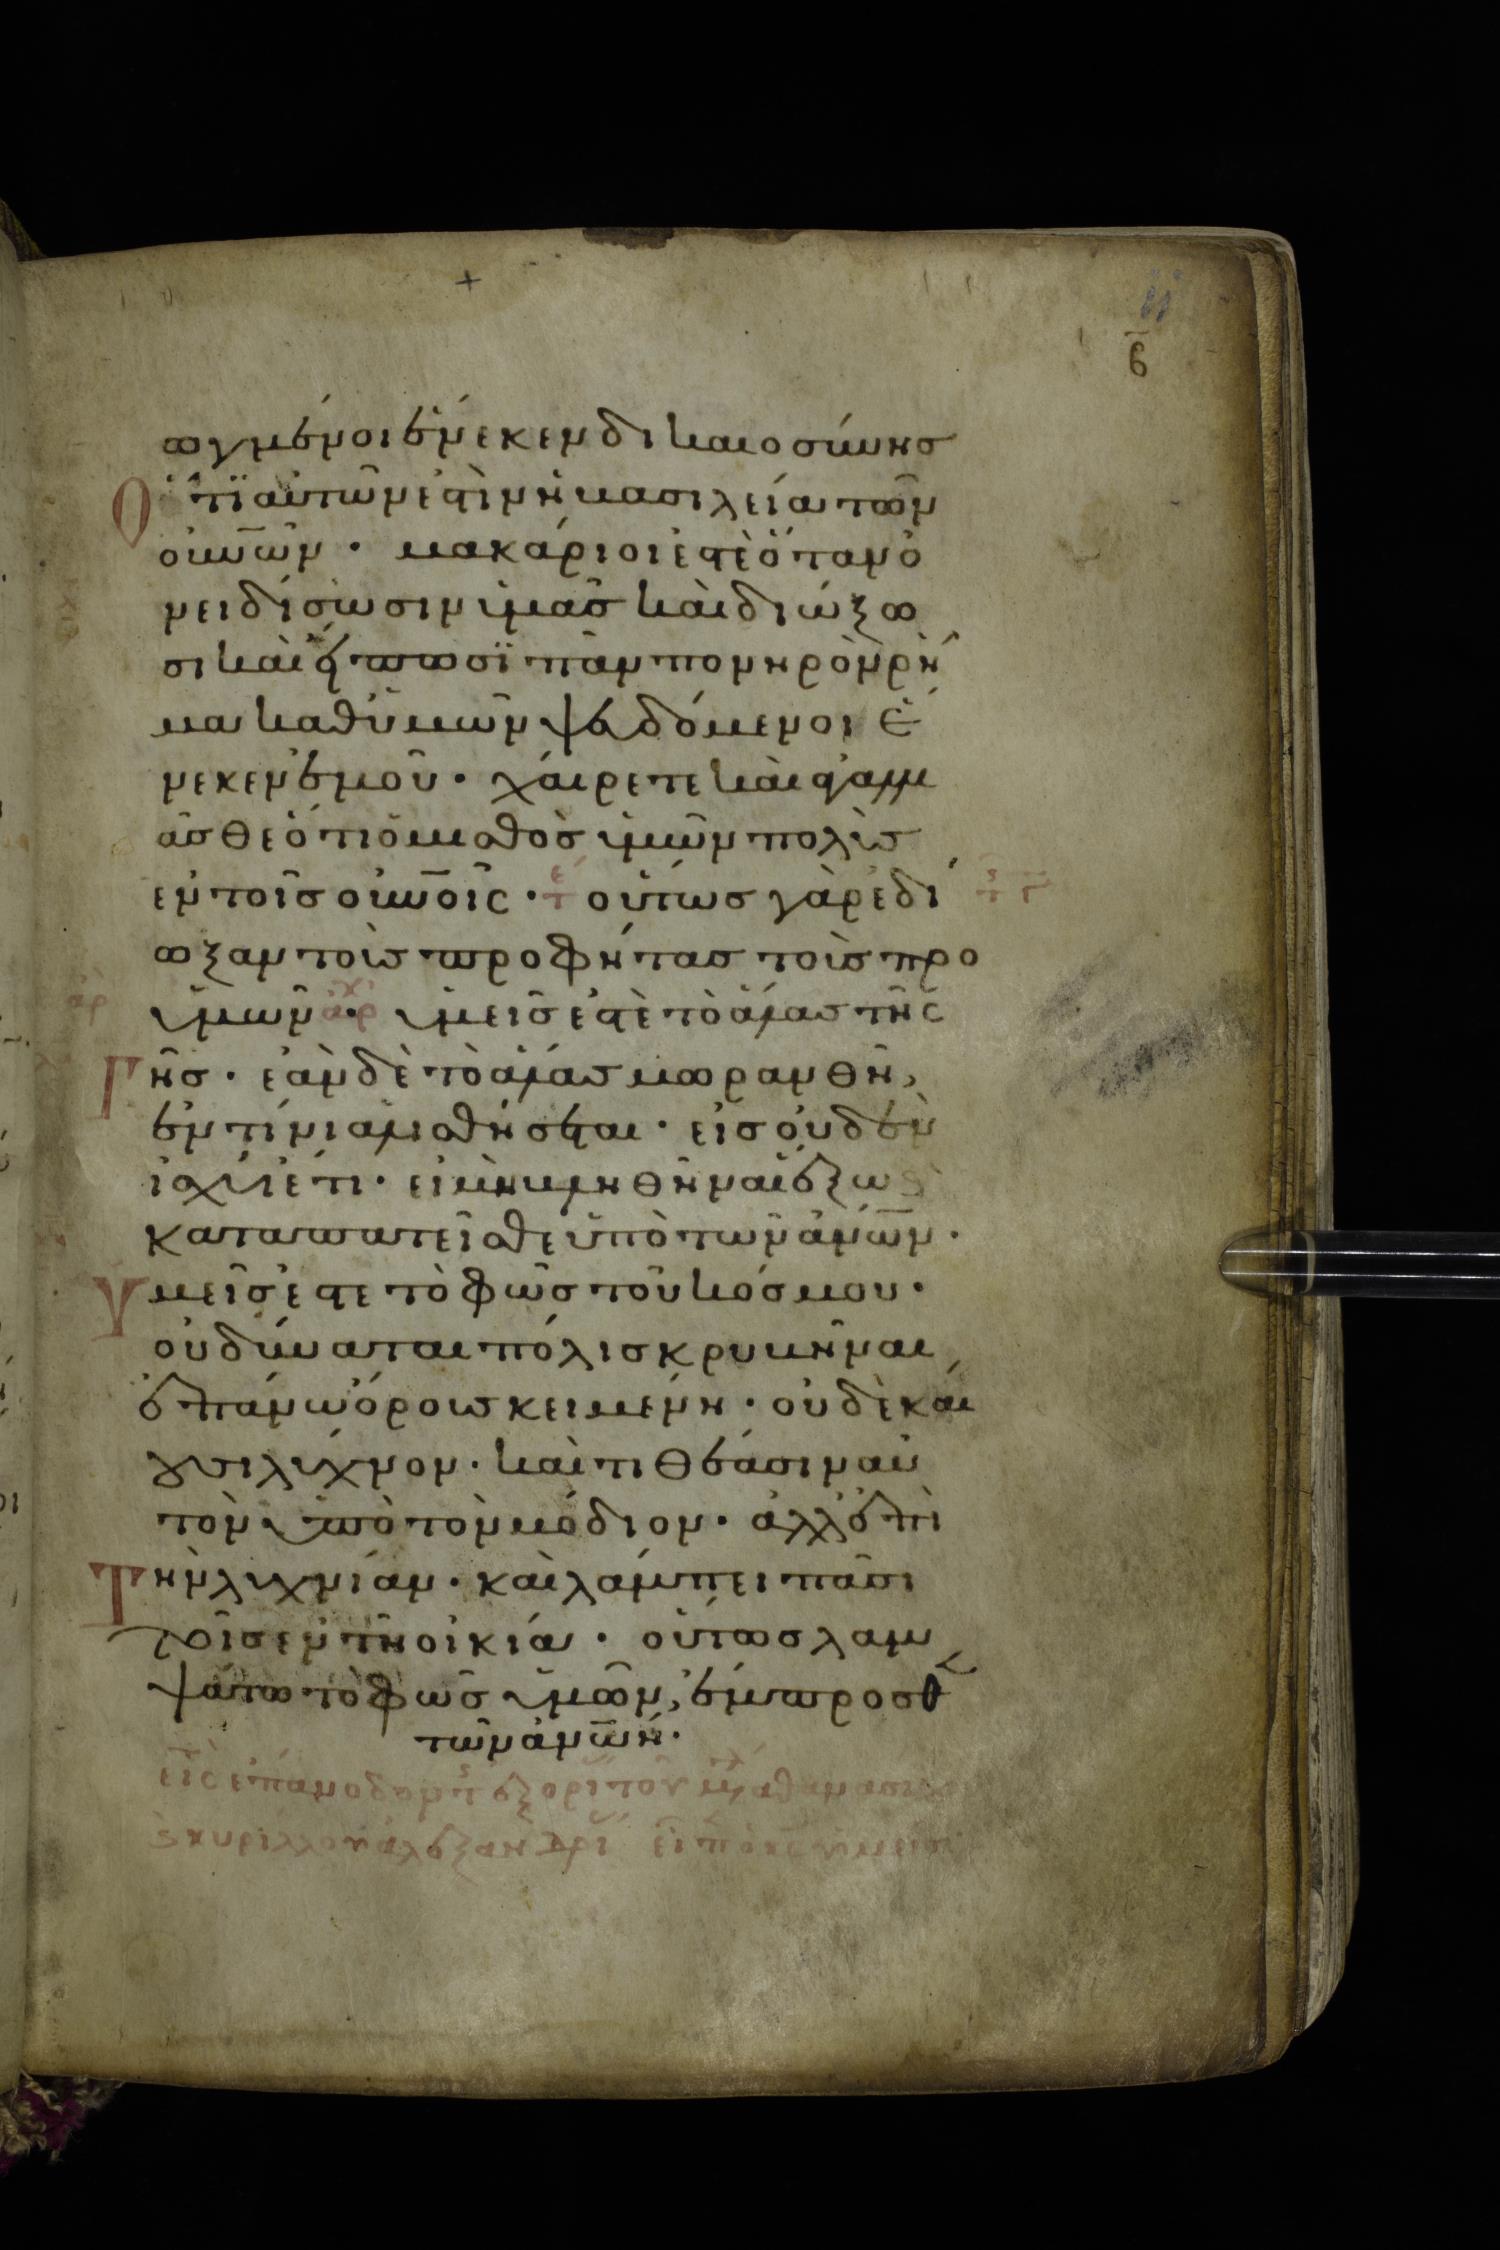 ιι
ϛ
ωγμένοι ἕνεκεν δικαιοσύνης
Ὅτι αὐτῶν ἐστὶν ἡ βασιλεία τῶν
οὐνῶν · μακάριοί ἐστὲ ὅταν ὀ
νειδίσωσιν ὑμᾶς καὶ διώξω
σι καὶ εἴπωσϊ πᾶν πονηρὸν ῥῆ
μα καθ ὑμῶν ψευδόμενοι ἕ
νεκεν ἐμοῦ · χαίρετε καὶ ἀγαλλι
ᾶσθε ὅτι ὁ μισθὸς ὑμῶν πολὺς
ἐν τοῖς οὐνοῖς · οὕτως γὰρ ἐδί
ωξαν τοὺς προφήτας τοὺς πρὸ
ὑμῶν · ὑμεῖς ἐστὲ τὸ ἅλας τῆς
Γῆς · ἐὰν δὲ τὸ ἅλας μωρανθῆ,
ἐν τίνι ἁλισθήσεται · εἰς οὐδὲν
ἰσχύει ἔτι · εἰ μὴ βληθῆναι ἔξω
καταπατεῖσθε ὑπὸ τῶν ἀνων ·
Υμεῖς ἐστε τὸ φῶς τοῦ κόσμου ·
οὐ δύναται πόλις κρυβῆναι
ἐπάνω ὄρους κειμένη · οὐδὲ καί
ουσι λύχνον · καὶ τιθέασιν αὐ
τὸν ὑπὸ τὸν μόδιον · ἀλλ ἐπὶ
Τὴν λυχνίαν · καὶ λάμπει πᾶσι
τοῖς ἐν τῆ οικία · οὕτως λαμ
ψάτω τὸ φῶς ὑμῶν, ἔμπροσθ
τῶν ἀνων ·
εἰς ἐπάνοδον ἐξορι τοῦ ἀθανασι
κυρίλλου ἀλεξανδρι ὑμεῖς